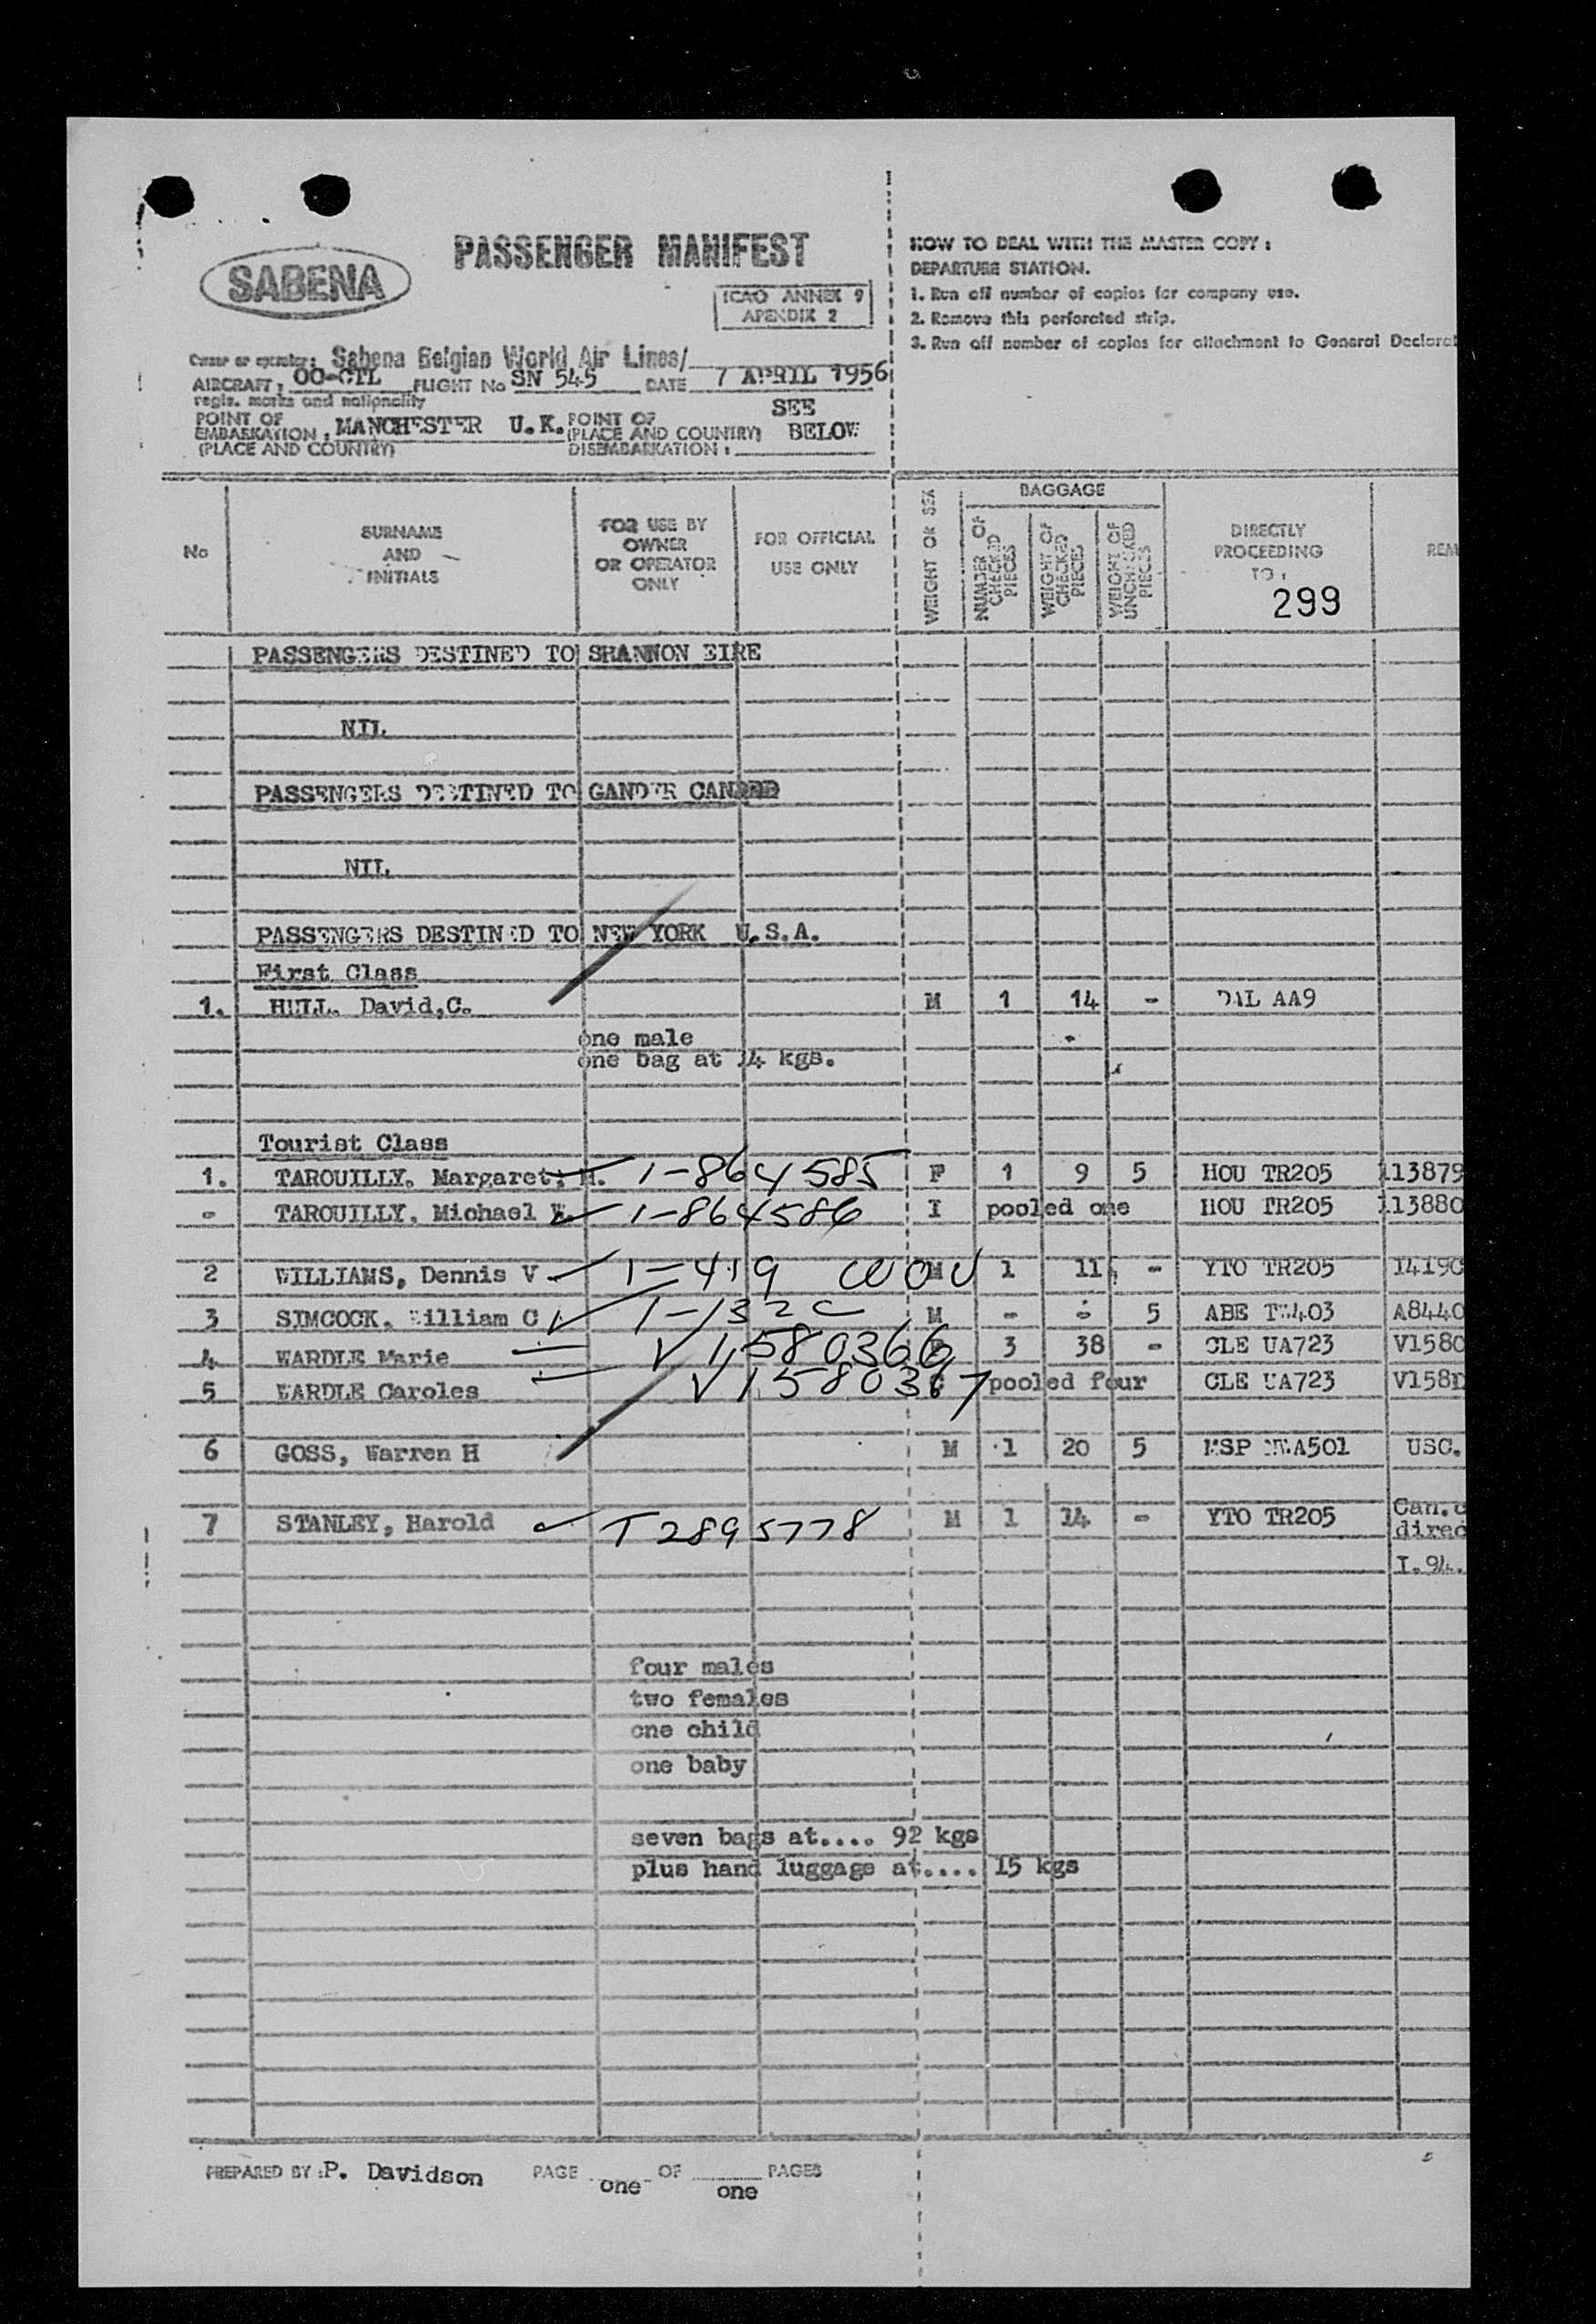 SABENA
PASSENGER MANIFEST
ICAO ANNEX 9
APENDIX 2
HOW TO DEAL WITH THE MASTER COPY :
DEPARTURE STATION.
1. Run off number of copies for company use.
2. Remove this perforated strip.
3. Run off number of copies for attachment to General Declarat
Owner or operator: Sabena Belgian World Air Lines/
AIRCRAFT: OO-CTL FLIGHT No SN 545 DATE 7 APRIL 1956
regis. marks and nationality
POINT OF EMBARKATION : MANCHESTER U.K. POINT OF (PLACE AND COUNTRY) SEE BELOW
(PLACE AND COUNTRY) DISEMBARKATION :
No
SURNAME AND INITIALS
FOR USE BY OWNER OR OPERATOR ONLY
FOR OFFICIAL USE ONLY
WEIGHT OR SEX
BAGGAGE
NUMBER OF CHECKED PIECES
WEIGHT OF CHECKED PIECES
WEIGHT OF UNCHECKED PIECES
DIRECTLY PROCEEDING TO :
299
REM
PASSENGERS DESTINED TO SHANNON EIRE
NIL
PASSENGERS DESTINED TO GANDER
NIL
PASSENGERS DESTINED TO NEW YORK U.S.A.
First Class
1. HULL. David,C. M 1 14 - DAL AA9
one male
one bag at 14 kgs.
Tourist Class
1. TAROUILLY. Margaret, H. 1-864585 F 1 9 5 HOU TR205 113879
- TAROUILLY. Michael W. 1-864586 I pooled one HOU TR205 113880
2 WILLIAMS, Dennis V 1-419 M 1 11 - YTO TR205 14190
3 SIMCOCK. William C 1-132 M - - 5 ABE TW403 A8440
4 WARDLE Marie V1580366 F 3 38 - CLE UA723 V1580
5 WARDLE Caroles V1580367 C pooled four CLE UA723 V158
6 GOSS, Warren H M 1 20 5 MSP NWA501 USC.
7 STANLEY, Harold T2895778 M 1 14 - YTO TR205 Can.c
direc
I.94.
four males
two females
one child
one baby
seven bags at.... 92 kgs
plus hand luggage at.... 15 kgs
PREPARED BY : P. Davidson PAGE one OF one PAGES